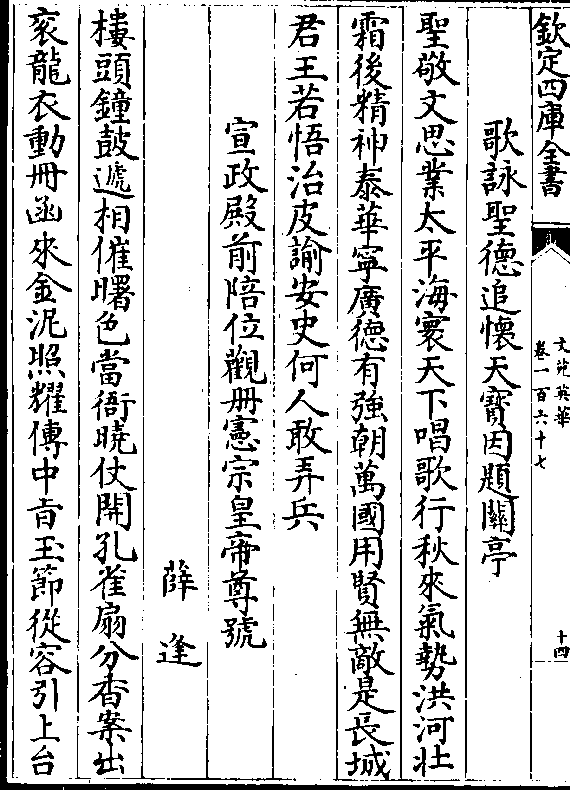 欽定四庫全書
文苑英華
卷一百六十七
十四
歌詠聖德追懷天寶因題關亭
聖敬文思業太平海寰天下唱歌行秋來氣勢洪河壮
霜後精神泰華寧廣德有強朝萬國用賢無敵是長城
君王若悟治皮論安史何人敢弄兵
宣政殿前陪位觀册憲宗皇帝尊號
薛逢
樓頭鐘鼓遞相催曙色當衙曉仗開孔雀扇分香案出
衮龍衣動册函來金泥照耀傳中旨玉節從容引上台